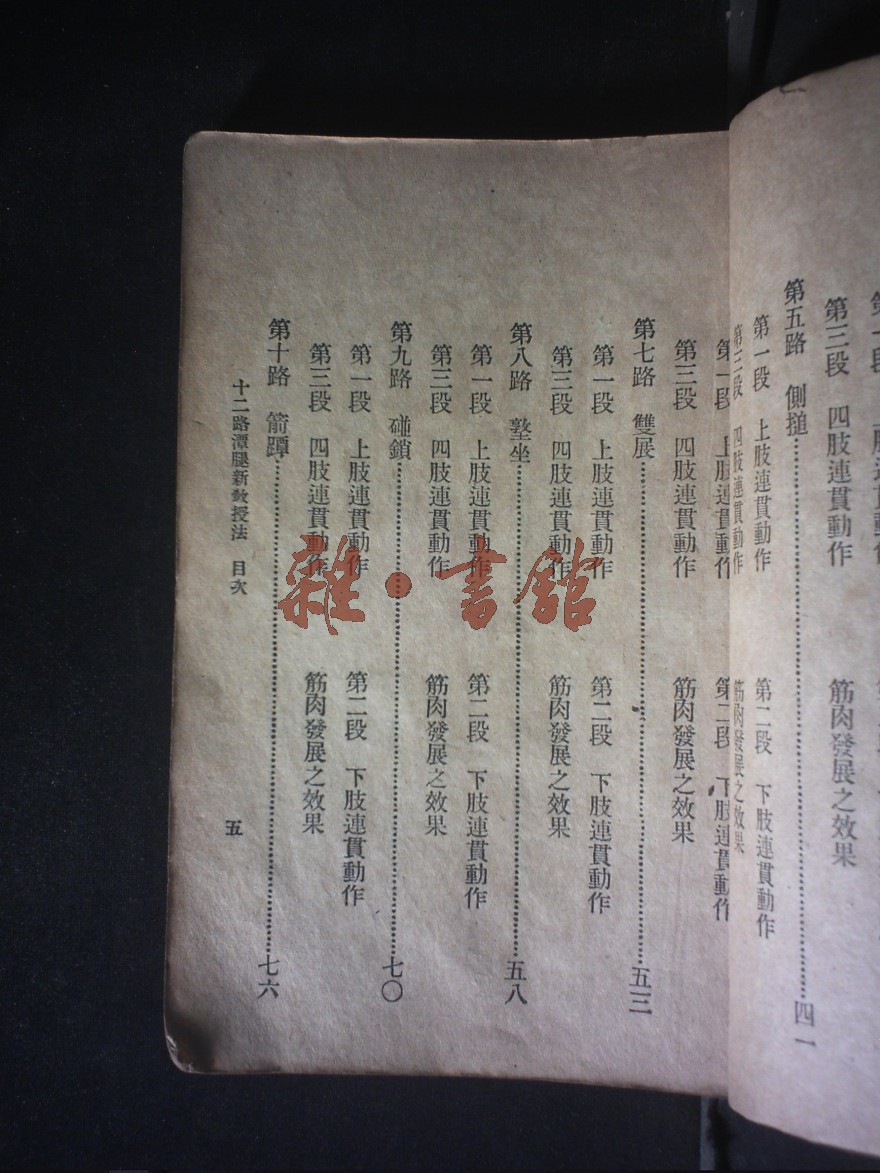 第三段　四肢連貫動作　筋肉發展之效果
第五路　側搥 四一
第一段　上肢連貫動作　第二段　下肢連貫動作
第三段　四肢連貫動作　筋肉發展之效果
第一段　上肢連貫動作　第二段　下肢連貫動作
第三段　四肢連貫動作　筋肉發展之效果
第七路　雙展 五三
第一段　上肢連貫動作　第二段　下肢連貫動作
第三段　四肢連貫動作　筋肉發展之效果
第八路　蹩坐 五八
第一段　上肢連貫動作　第二段　下肢連貫動作
第三段　四肢連貫動作　筋肉發展之效果
第九路　碰鎖 七〇
第一段　上肢連貫動作　第二段　下肢連貫動作
第三段　四肢連貫動作　筋肉發展之效果
第十路　箭蹕 七六
十二路潭腿新教授法　目次　五
雜·書館